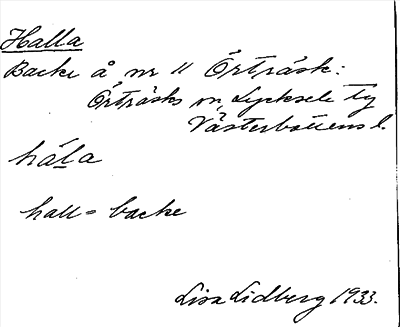 Halla
Backe å nr 11 Örträsk:
Örträsks sn, Lycksele
Västerbottens l.
håla
hall = backe
Lisa Lidberg 1933.